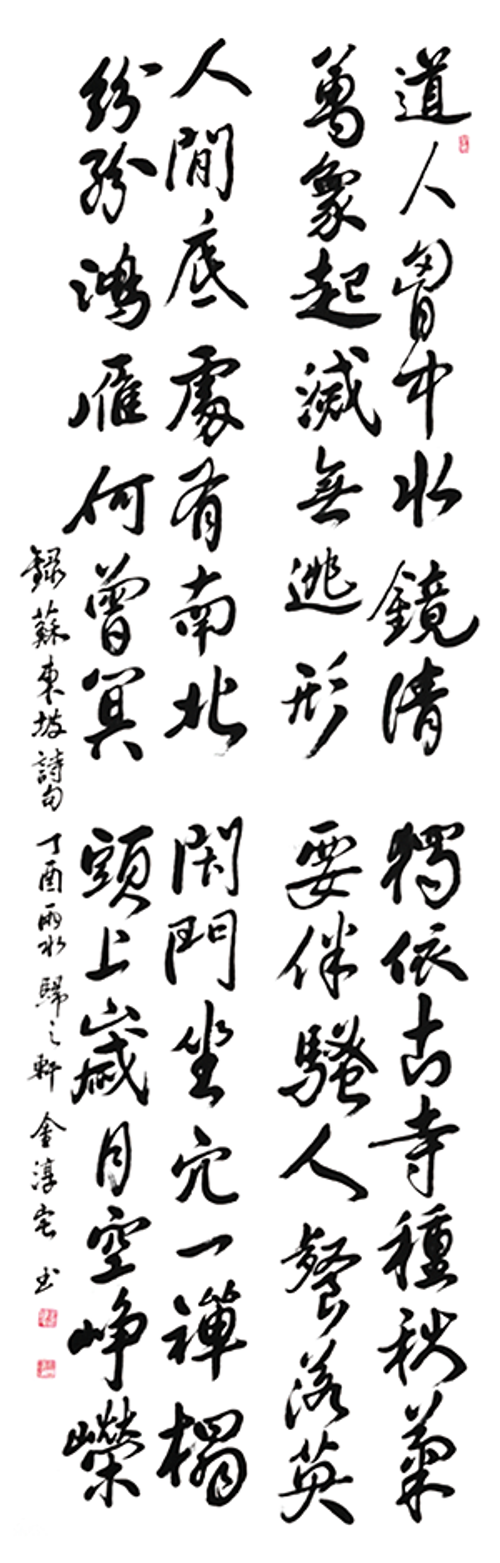 道人胷中水鏡清
萬象起滅無逃形
獨依古寺種秋菊
要伴騷人餐落英
人間底處有南北
紛紛鴻雁何曾冥
閉門坐穴一禪榻
頭上歲月空崢嶸
錄蘇東坡詩句 丁酉雨水 歸之軒 金淳宅